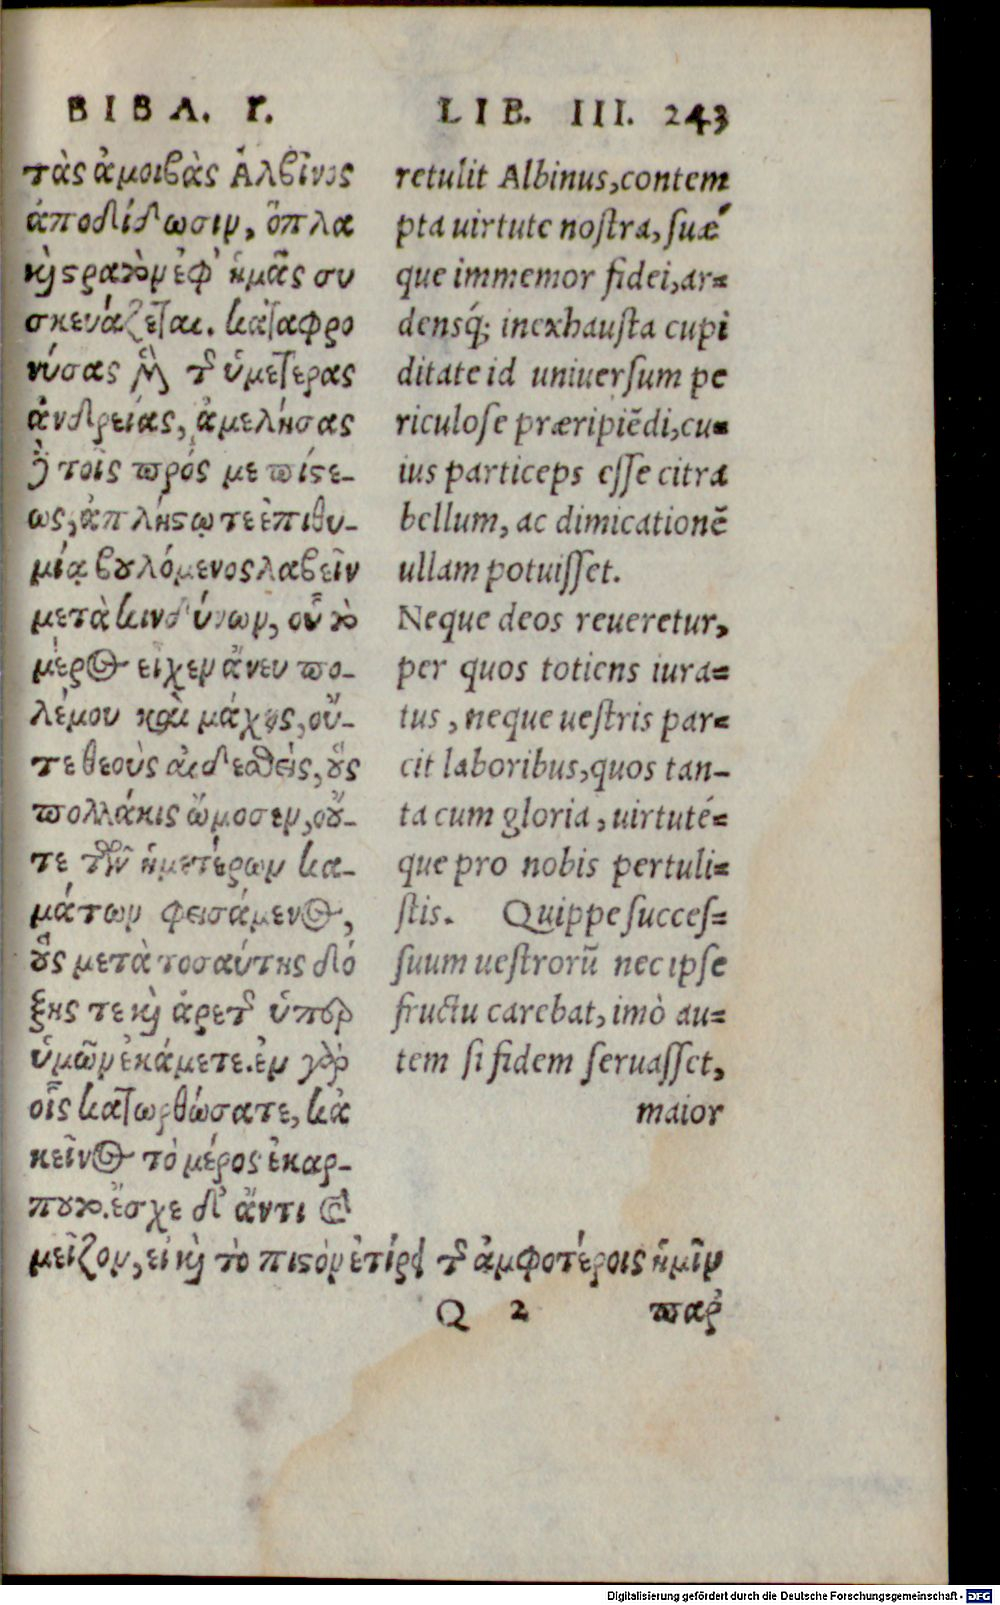 ΒΙΒΛ. Γ.
τὰς ἀμοιβὰς Ἀλβῖνος
ἀποδίδωσιν, ὅπλα
καὶ στρατὸν ἐφ' ἡμᾶς συ
σκευάζεται. καταφρο
νήσας μὲν τῆς ὑμετέρας
ἀνδρείας, ἀμελήσας
δὲ τῆς πρός με πίστε-
ως, ἀπλήστῳ τε ἐπιθυ-
μίᾳ βουλόμενος λαβεῖν
μετὰ κινδύνων, οὗ τὸ
μέρος εἶχεν ἄνευ πο-
λέμου καὶ μάχης, οὔ-
τε θεοὺς αἰδεσθείς, οὓς
πολλάκις ὤμοσεν, οὔ-
τε τῶν ἡμετέρων κα-
μάτων φεισάμενος,
οὓς μετὰ τοσαύτης δό
ξης τε καὶ ἀρετῆς ὑπὲρ
ὑμῶν ἐκάμετε. ἐν γὰρ
οἷς κατωρθώσατε, κἀ
κεῖνος τὸ μέρος ἐκαρ-
ποῦτο. ἔσχε δ' ἄν τι καὶ
μεῖζον, εἰ καὶ τὸ πιστὸν ἐτήρει τῆς ἀμφοτέροις ἡμῖν
LIB. III. 243
retulit Albinus, contem
pta uirtute nostra, suæ´
que immemor fidei, ar=
densq́; inexhausta cupi
ditate id uniuersum pe
riculose præripiẽdi, cu=
ius particeps esse citra
bellum, ac dimicationẽ
ullam potuisset.
Neque deos reueretur,
per quos totiens iura=
tus, neque uestris par=
cit laboribus, quos tan-
ta cum gloria, uirtuté=
que pro nobis pertuli=
stis. Quippe succes=
suum uestrorũ nec ipse
fructu carebat, imò au=
tem si fidem seruasset,
maior
Q 2 παρ'
Digitalisierung gefördert durch die Deutsche Forschungsgemeinschaft - DFG